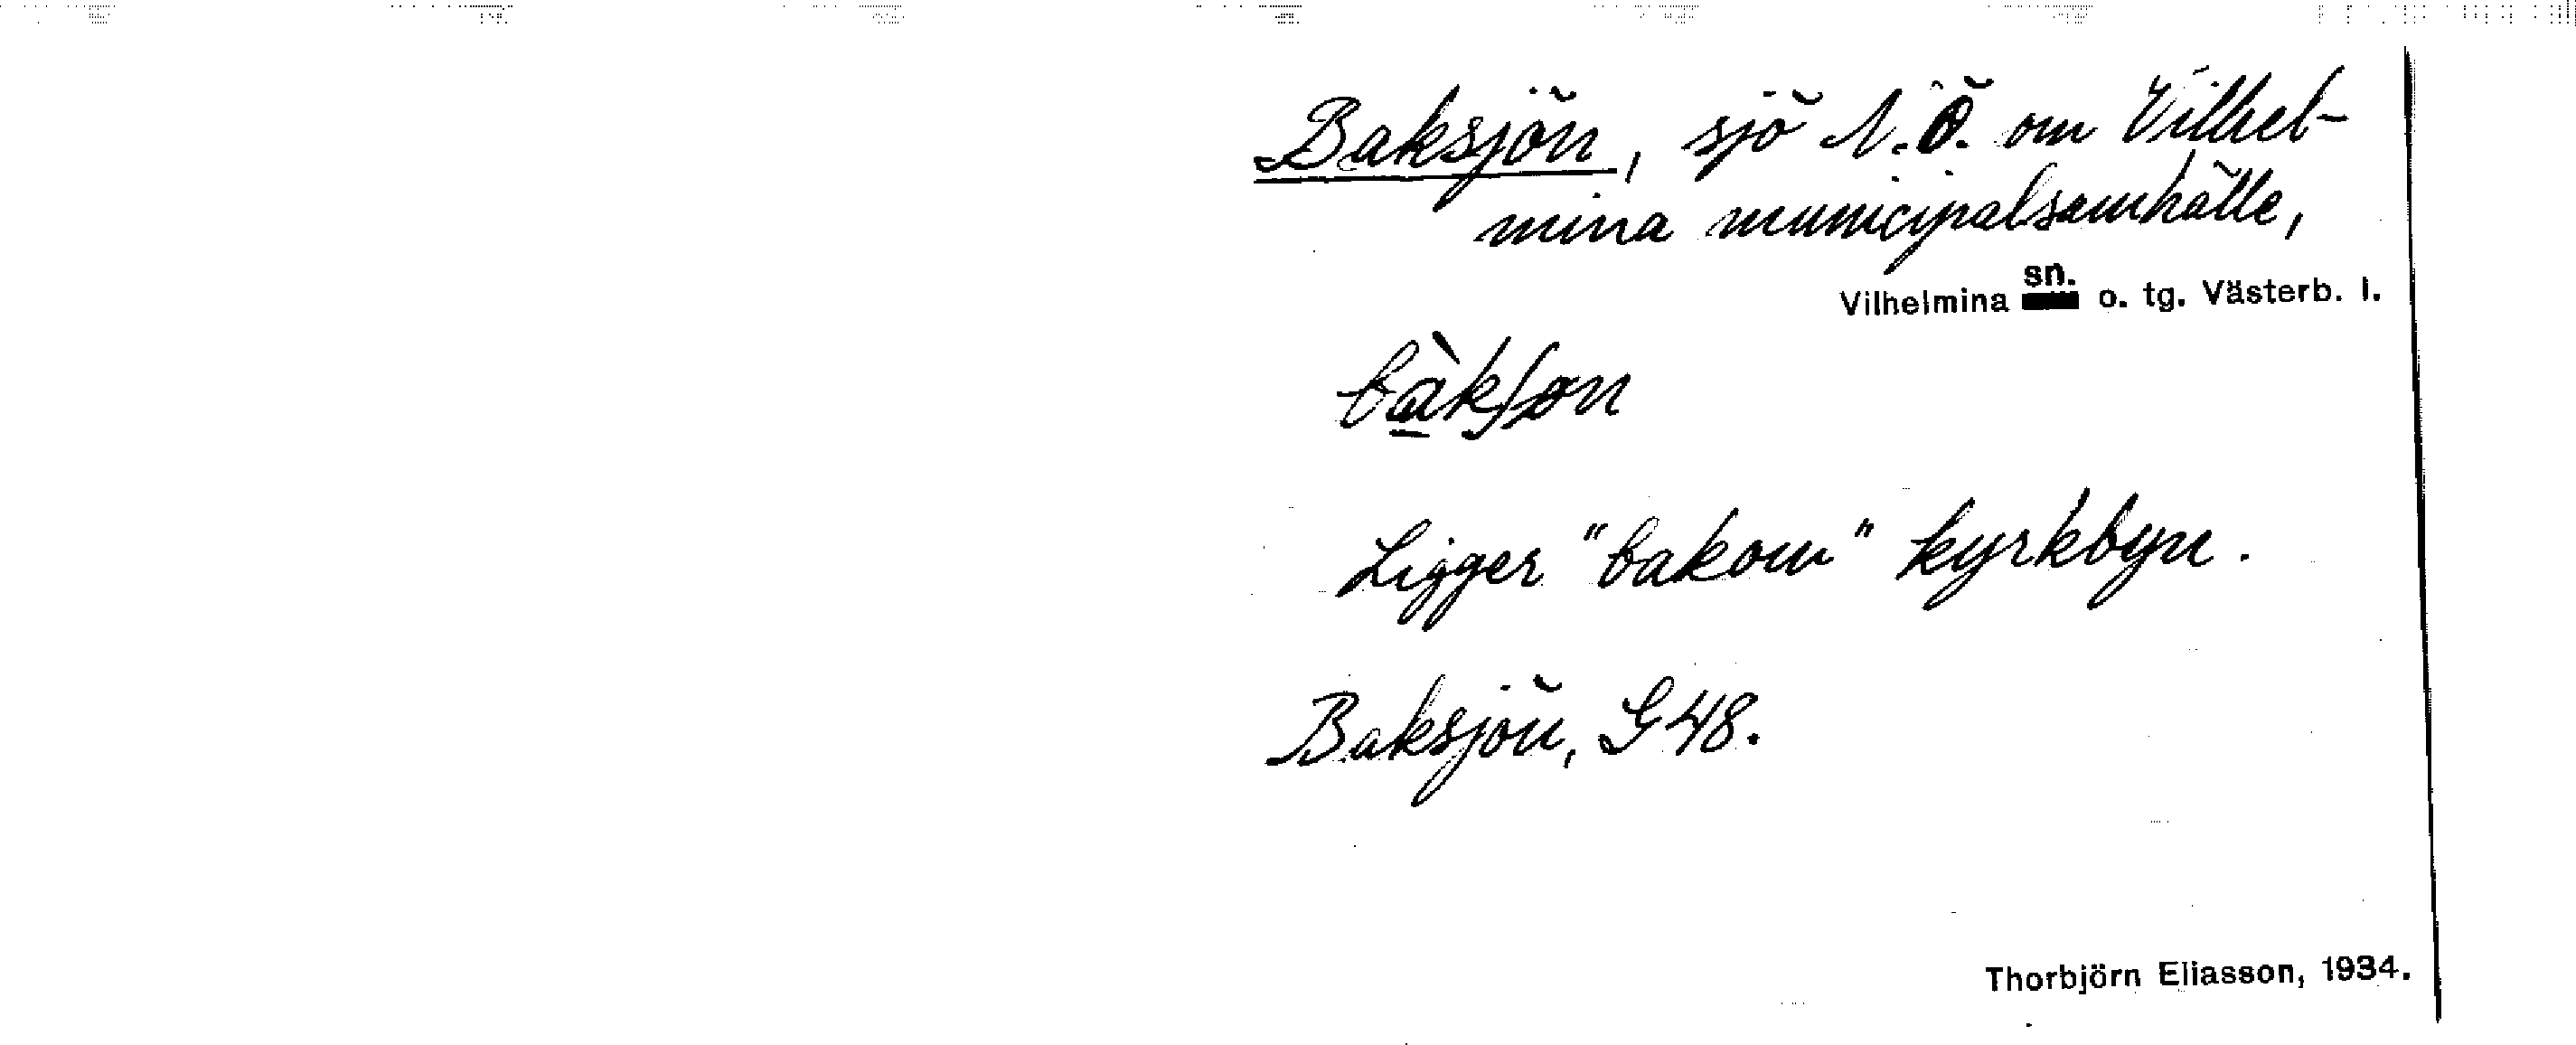 Baksjön, sjö N.Ö. om Vilhel-
mina municipalsamhälle,
Vilhelmina sn. o. tg. Västerb. l.
bàkʃøn
Ligger "bakom" kyrkbyn.
Baksjön, G 48.
Thorbjörn Eliasson, 1934.